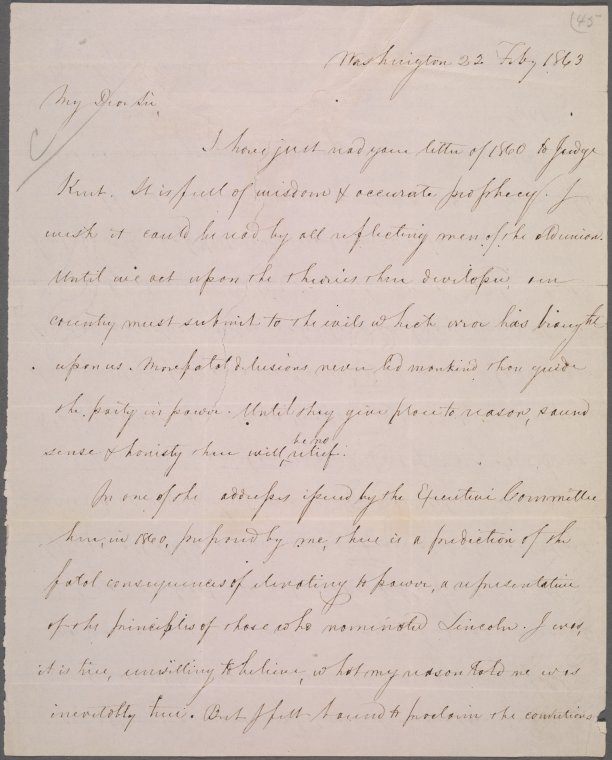 (45
Washington 22 Feby 1863
My Dear Sir,
I have just read your letter of 1860 to Judge
Kent. It is full of wisdom & accurate prophecy. I
wish it could be read by all reflecting men of the old union.
Until we act upon the theories there developed, our
country must submit to the evils which error has brought
upon us. More fatal delusions never led mankind than guide
the party in power. Until they give place to reason, sound
sense & honesty there will be no relief.
In one of the addresses issued by the Executive Committee
here, in 1860, prepared by me, there is a prediction of the
fatal consequences of elevating to power, a representative
of the principles of those who nominated Lincoln. I was,
it is true, unwilling to believe, what my reason told me was
inevitably true. But I felt bound to proclaim the convictions